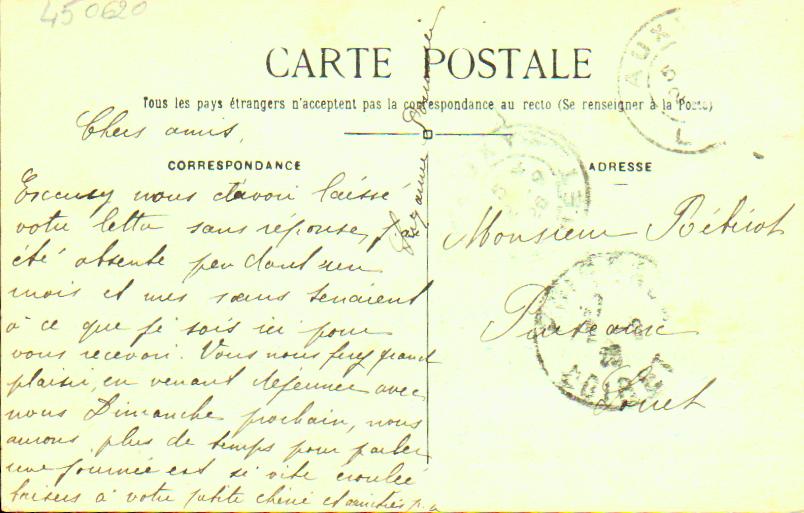 450620
CARTE POSTALE
Tous les pays étrangers n'acceptent pas la correspondance au recto (Se renseigner à la Poste)
CORRESPONDANCE
ADRESSE
Chers amis,
Excusez nous d'avoir laissé
votre lettre sans réponse, j'ai
été absente pendant un
mois et mes sœurs tenaient
à ce que je sois ici pour
vous recevoir. Vous nous ferez grand
plaisir, en venant déjeuner avec
nous Dimanche prochain, nous
aurons plus de temps pour parler
une journée est si vite écoulée
baisers à votre petite chérie et amitiés
Suzanne
Monsieur Rébérot
Puiseaux
Loiret
AUX
LOIRET